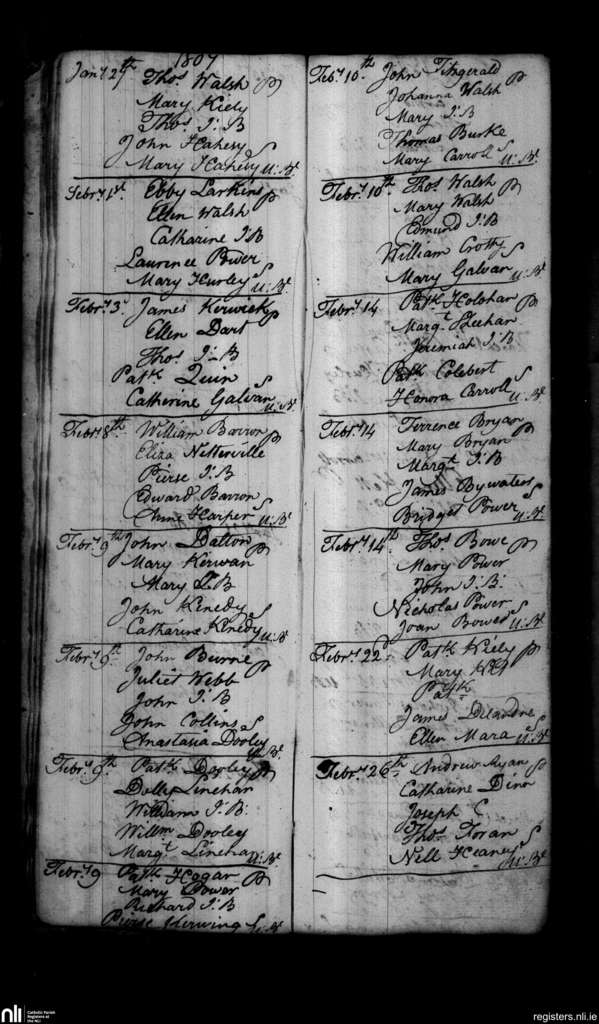 1807
Jany 27th Thos Walsh P
Mary Kiely
Thos I:B
John Hahesy S
Mary Hahesy U:Bt
Febry 1st Ebby Larkins P
Ellen Walsh
Catharine I B
Laurence Power S
Mary Hurley U:Bt
Febry 3d James Kerwick P
Ellen Dart
Thos I:B
Patk Quin S
Catherine Galvan U:Bt
Febry 8th William Barron P
Eliza Netterville
Pierse I:B
Edward Barron S
Anne Harper U:Bt
Febry 9th John Dalton P
Mary Kerwan
Mary I:B
John Kenedy S
Catharine Kenedy U:Bt
Febry 9th John Burne P
Juliet Webb
John I:B
John Collins S
Anastasia Dooley U:Bt
Febry 9th Patk Dooley P
Dolly Linehan
William I.B:
Willm Dooley
Margt Linehan U:Bt
Febry 9 Patk Hogan P
Mary Power
Richard I:B
Pierse Kerwing S
Feby 10th John Fitzgerald P
Johanna Walsh
Mary I:B
Thomas Burke S
Mary Carroll U:Bt
Febry 10th Thos Walsh P
Mary Walsh
Edmund I:B
William Crotty S
Mary Galvan U:Bt
Febry 14 Patk Holohan P
Margt Sheehan
Jeremiah I:B
Patk Colebert S
Honora Carroll U:Bt
Febry 14 Terrence Bryan P
Mary Bryan
Margt I:B
James Bywaters S
Bridget Power U:Bt
Febry 14th Thos Bowe P
Mary Power
John I:B:
Nicholas Power S
Joan Bowes U:Bt
Febry 22d Patk Kiely P
Mary
Patk
James S
Ellen Mara U:Bt
Febry 26th Andrew Ryan P
Catharine Dinn
Joseph C
Thos Foran S
Nell Heaney U:Bt
nli
Catholic Parish
Registers at
the NLI
registers.nli.ie